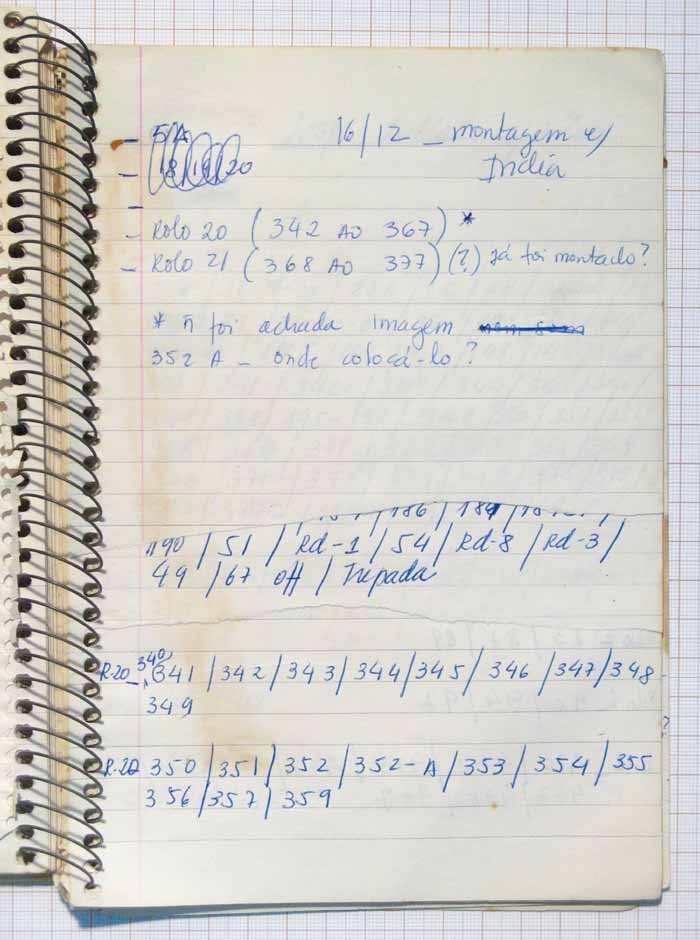 - 5/A
- 18/19/20
16/12 _ montagem c/
India
-
- Rolo 20 (342 AO 367)*
- Rolo 21 (368 AO 377) (?) Já foi montado?
* ñ foi achada imagem
352 A _ onde colocá-lo?
186 / 184 /
1190 / 51 / Rd-1 / 54 / Rd-8 / Rd-3 /
49 / 67 off / Trepada
R.20 _ 340, 341 / 342 / 343 / 344 / 345 / 346 / 347 / 348
349
R.20 350 / 351 / 352 / 352-A / 353 / 354 / 355
356 / 357 / 359